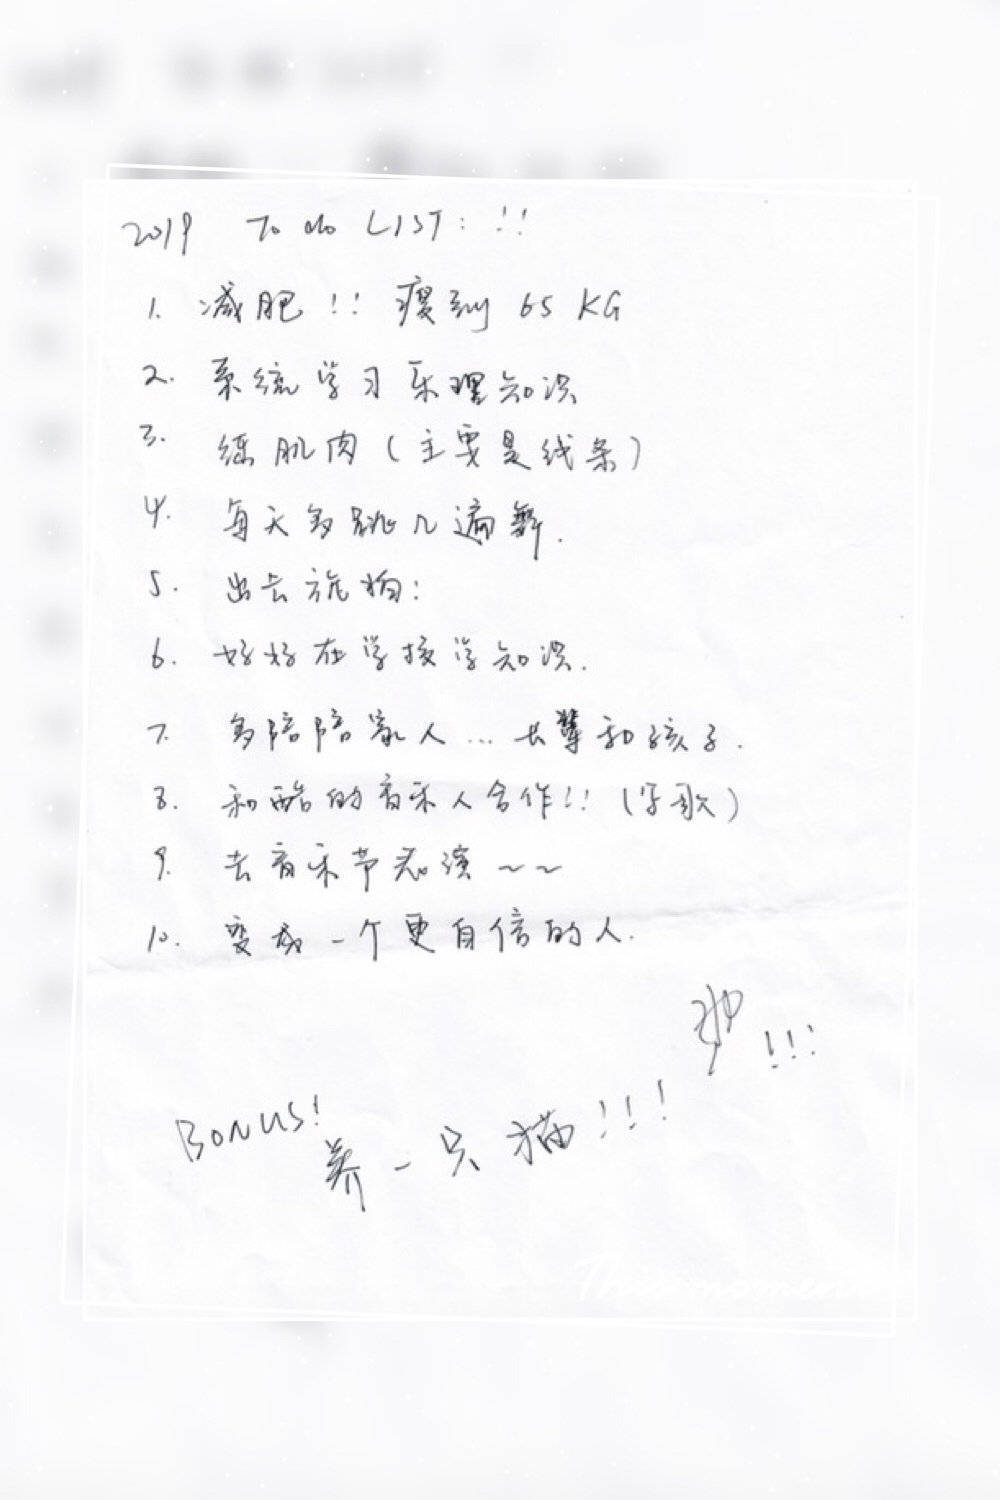 2019 To do LIST: !!
1. 减肥!! 瘦到 65 KG
2. 系统学习乐理知识
3. 练肌肉(主要是线条)
4. 每天多跳几遍舞.
5. 出去旅拍:
6. 好好在学校学知识.
7. 多陪陪家人...长辈和孩子.
8. 和酷的音乐人合作!! (写歌)
9. 去音乐节表演~~
10. 变成一个更自信的人.
!!!
BONUS!
养一只猫!!!